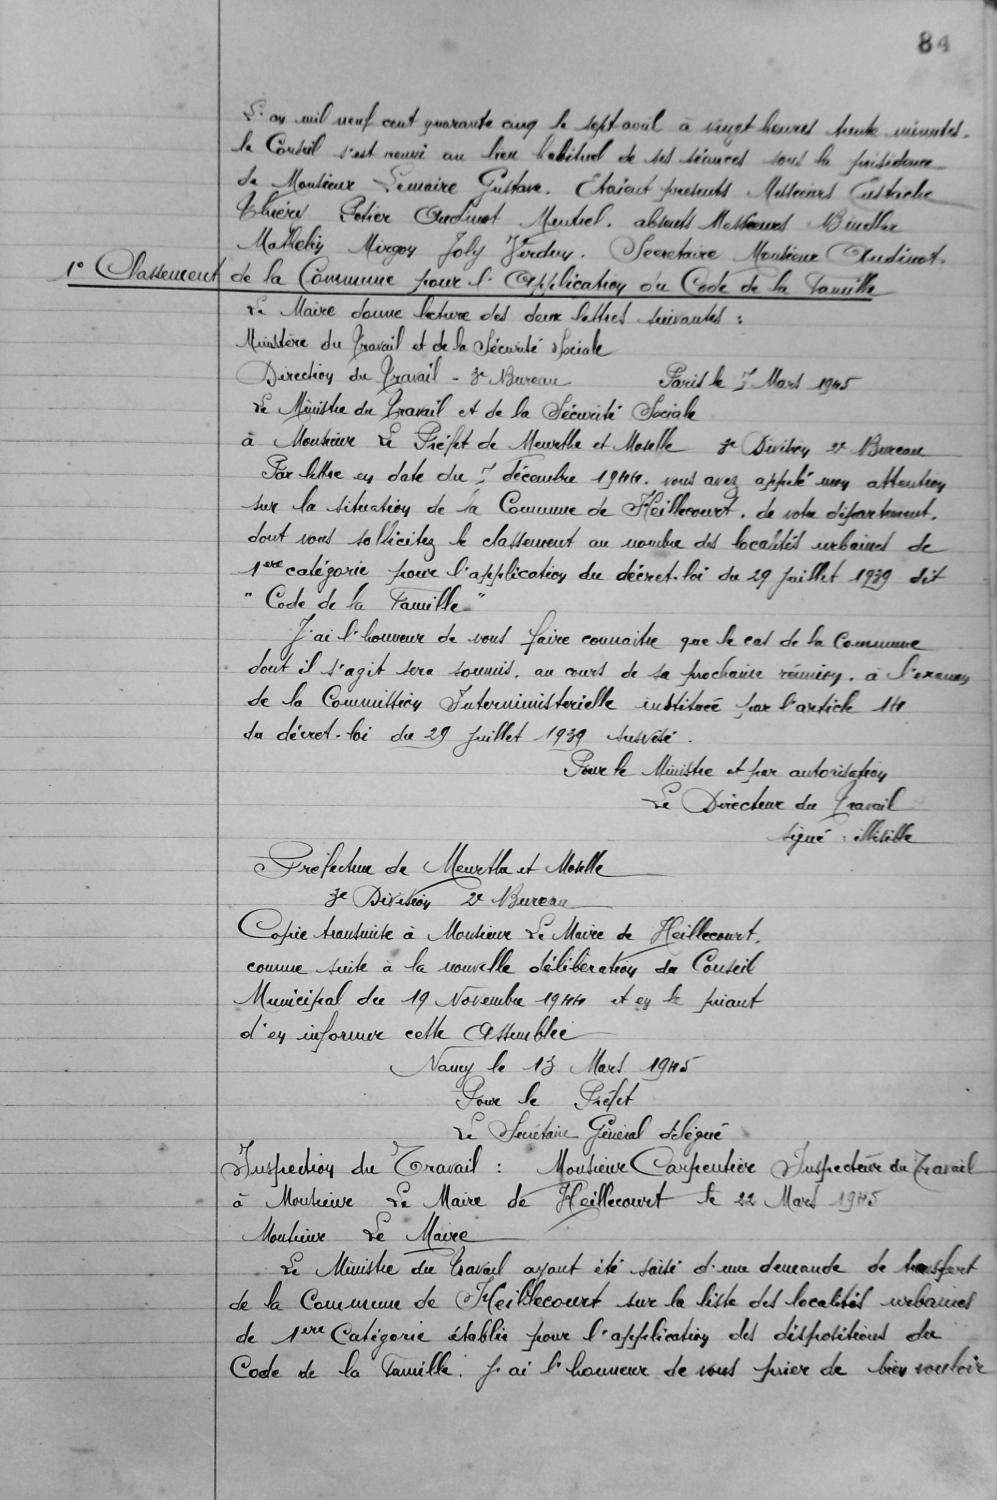 84
L'an mil neuf cent quarante cinq le sept avril à vingt heures trente minutes.
le Conseil s'est reuni au lieu habituel de ses séances sous la présidence
de Monsieur Lemaire Gustave. Etaient presents Messieurs Eustache
Thiéry Potier Oudinot Mentrel. absents Messieurs Bindler
Mathelin Mirgon Joly Verduy. Secretaire Monsieur Oudinot.
1° Classement de la Commune pour l'Application du Code de la Famille
Le Maire donne lecture des deux lettres suivantes :
Ministère du Travail et de la Sécurité Sociale
Direction du Travail - 3e Bureau Paris le 7 Mars 1945
Le Ministre du Travail et de la Sécurité Sociale
à Monsieur Le Préfet de Meurthe et Moselle 3e Division 2e Bureau
Par lettre en date du 7 décembre 1944. vous avez appelé mon attention
sur la situation de la Commune de Heillecourt. de votre département.
dont vous sollicitez le classement au nombre des localités urbaines de
1ere catégorie pour l'application du décret-loi du 29 Juillet 1939 dit
" Code de la Famille "
J'ai l'honneur de vous faire connaitre que le cas de la Commune
dont il s'agit sera soumis. au cours de sa prochaine réunion. à l'examen
de la Commission Interministerielle instituée par l'article 14
du décret-loi du 29 Juillet 1939 susvisé.
Pour le Ministre et par autorisation
Le Directeur du Travail
signé : illisible
Préfecture de Meurthe et Moselle
3e Division 2e Bureau
Copie transmise à Monsieur Le Maire de Heillecourt.
comme suite à la nouvelle délibération du Conseil
Municipal du 19 Novembre 1944 et en le priant
d'en informer cette Assemblée
Nancy le 13 Mars 1945
Pour le Préfet
Le Secrétaire Général délégué
Inspection du Travail : Monsieur Carpentier Inspecteur du Travail
à Monsieur Le Maire de Heillecourt le 22 Mars 1945
Monsieur Le Maire
Le Ministre du Travail ayant été saisi d'une demande de transfert
de la Commune de Heillecourt sur la liste des localités urbaines
de 1ere Catégorie établie pour l'application des dispositions du
Code de la Famille. J'ai l'honneur de vous prier de bien vouloir